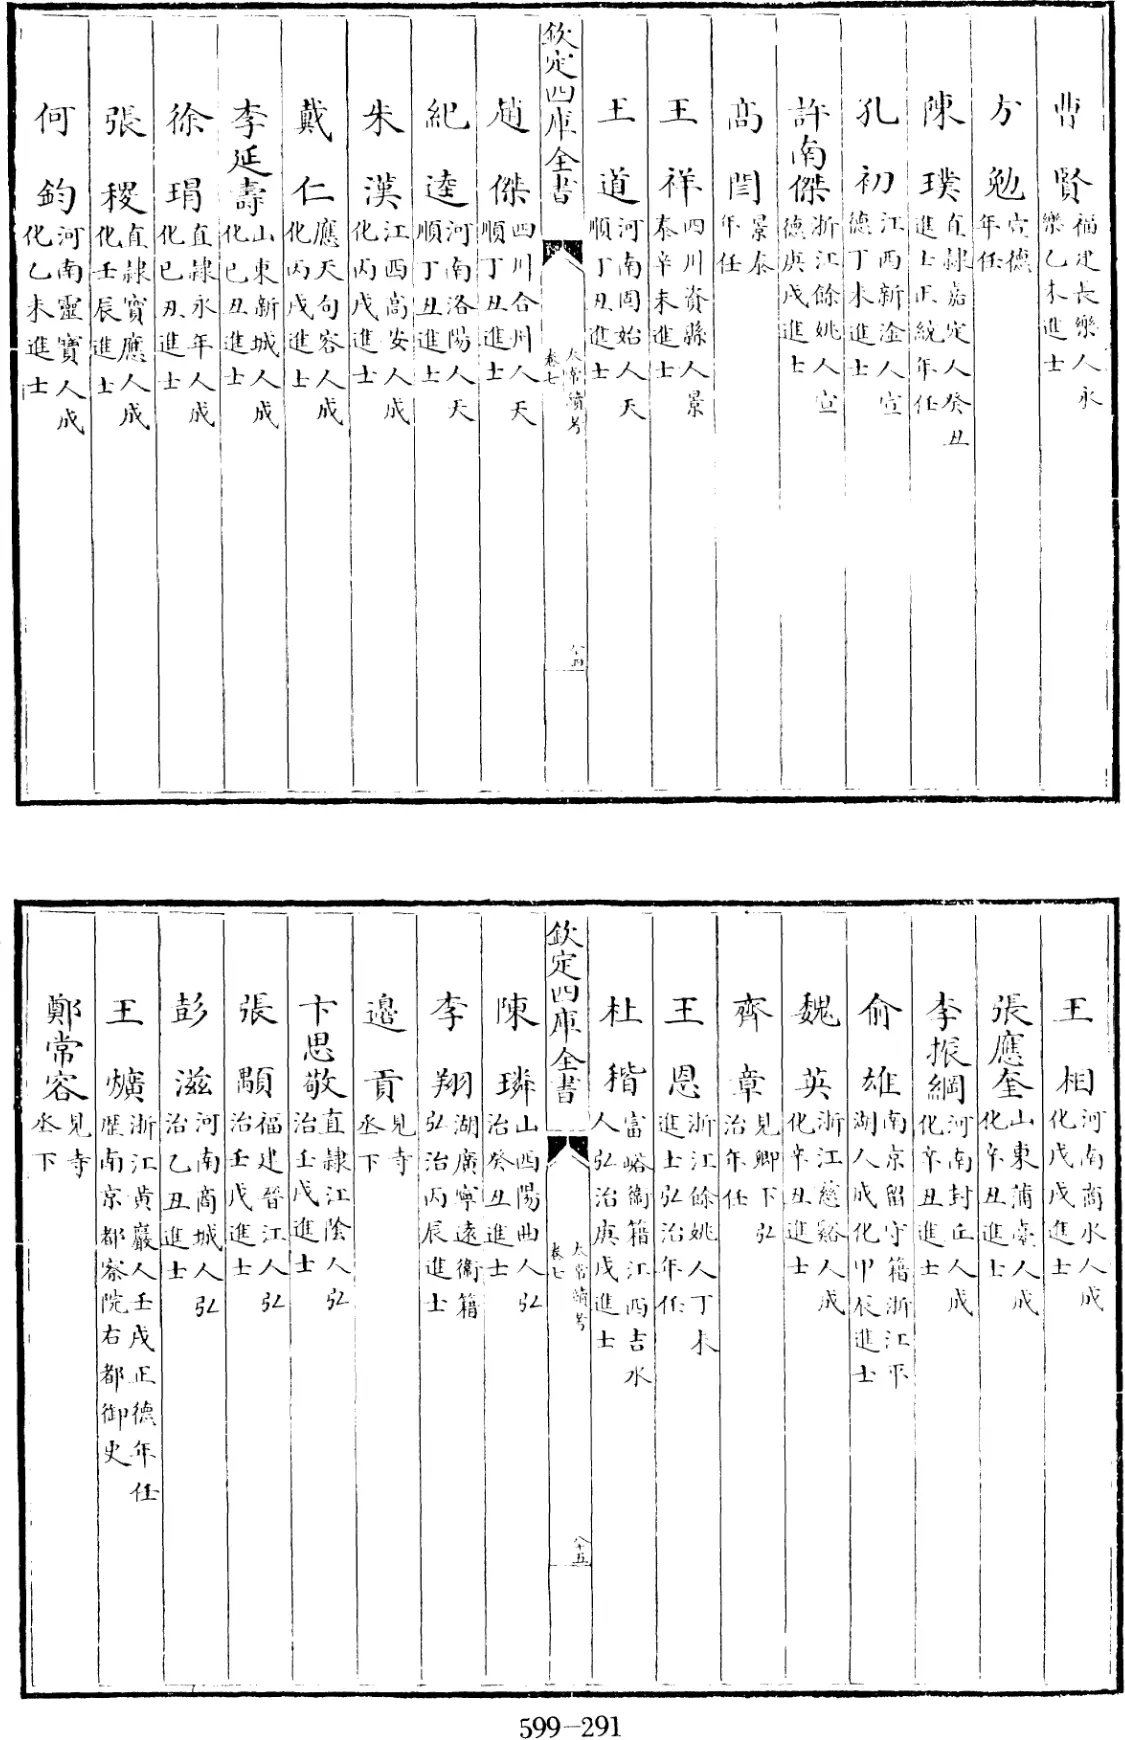 曹賢福建長樂人永樂乙未進士
方勉宣德年任
陳璞直隸嘉定人癸丑進士正統年任
孔初江西新淦人宣德丁未進士
許南傑浙江餘姚人宣德庚戌進士
高閏景泰年任
王祥四川資縣人景泰辛未進士
王道河南固始人天順丁丑進士
欽定四庫全書
太常續考
卷七
八十四
趙傑四川合州人天順丁丑進士
紀逵河南洛陽人天順丁丑進士
朱漢江西高安人成化丙戌進士
戴仁應天句容人成化丙戌進士
李延壽山東新城人成化己丑進士
徐琄直隸永年人成化己丑進士
張稷直隸寶應人成化壬辰進士
何鈞河南靈寶人成化乙未進士
王相河南商水人成化戊戌進士
張應奎山東蒲臺人成化辛丑進士
李振綱河南封丘人成化辛丑進士
俞雄南京留守籍浙江平湖人成化甲辰進士
魏英浙江慈谿人成化辛丑進士
齊章見卿下弘治年任
王恩浙江餘姚人丁未進士弘治年任
杜𥡴富峪衞籍江西吉水人弘治庚戌進士
欽定四庫全書
太常續考
卷七
八十五
陳璘山西陽曲人弘治癸丑進士
李翔湖廣寧遠衞籍弘治丙辰進士
邊貢見寺丞下
卞思敬直隸江陰人弘治壬戌進士
張顒福建晉江人弘治壬戌進士
彭滋河南商城人弘治乙丑進士
王爌浙江黃巖人壬戌正德年任歷南京都察院右都御史
鄭常容見寺丞下
599-291